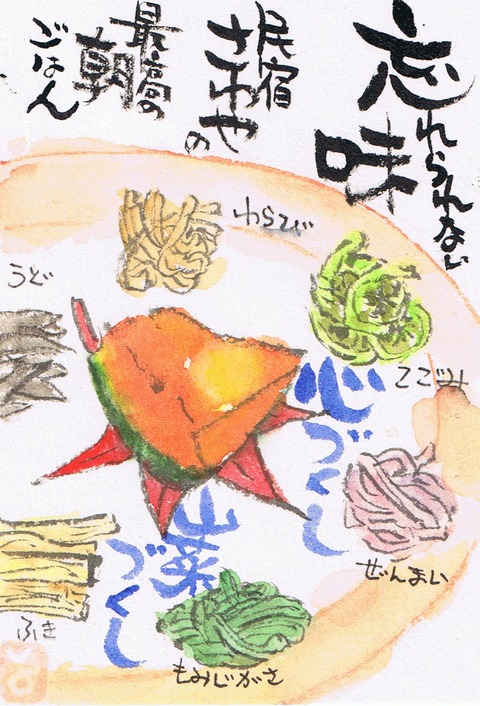 忘れられない
味
民宿
さわやの
最高の
朝
ごはん
わらび
うど
こごみ
心づくし
ぜんまい
山菜
づくし
ふき
もみじがさ